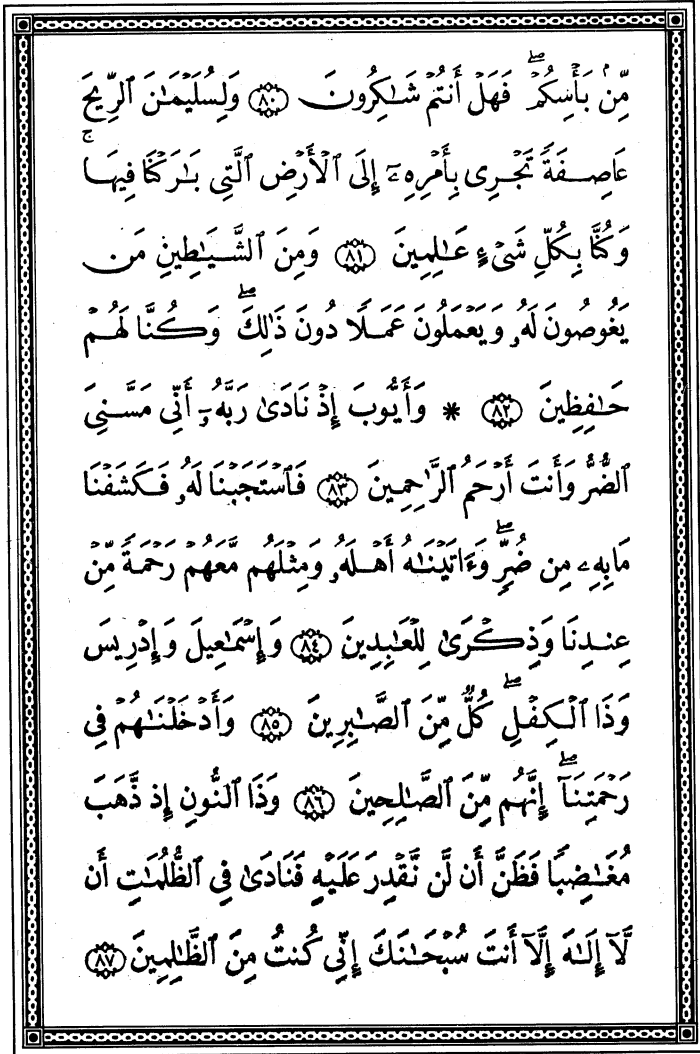 مِّنۢ بَأْسِكُمْ ۖ فَهَلْ أَنتُمْ شَـٰكِرُونَ ﴿٨٠﴾ وَلِسُلَيْمَـٰنَ ٱلرِّيحَ
عَاصِفَةً تَجْرِى بِأَمْرِهِۦٓ إِلَى ٱلْأَرْضِ ٱلَّتِى بَـٰرَكْنَا فِيهَا ۚ
وَكُنَّا بِكُلِّ شَىْءٍ عَـٰلِمِينَ ﴿٨١﴾ وَمِنَ ٱلشَّيَـٰطِينِ مَن
يَغُوصُونَ لَهُۥ وَيَعْمَلُونَ عَمَلًا دُونَ ذَٰلِكَ ۖ وَكُنَّا لَهُمْ
حَـٰفِظِينَ ﴿٨٢﴾ * وَأَيُّوبَ إِذْ نَادَىٰ رَبَّهُۥٓ أَنِّى مَسَّنِىَ
ٱلضُّرُّ وَأَنتَ أَرْحَمُ ٱلرَّٰحِمِينَ ﴿٨٣﴾ فَٱسْتَجَبْنَا لَهُۥ فَكَشَفْنَا
مَا بِهِۦ مِن ضُرٍّ ۖ وَءَاتَيْنَـٰهُ أَهْلَهُۥ وَمِثْلَهُم مَّعَهُمْ رَحْمَةً مِّنْ
عِندِنَا وَذِكْرَىٰ لِلْعَـٰبِدِينَ ﴿٨٤﴾ وَإِسْمَـٰعِيلَ وَإِدْرِيسَ
وَذَا ٱلْكِفْلِ ۖ كُلٌّ مِّنَ ٱلصَّـٰبِرِينَ ﴿٨٥﴾ وَأَدْخَلْنَـٰهُمْ فِى
رَحْمَتِنَآ ۖ إِنَّهُم مِّنَ ٱلصَّـٰلِحِينَ ﴿٨٦﴾ وَذَا ٱلنُّونِ إِذ ذَّهَبَ
مُغَـٰضِبًا فَظَنَّ أَن لَّن نَّقْدِرَ عَلَيْهِ فَنَادَىٰ فِى ٱلظُّلُمَـٰتِ أَن
لَّآ إِلَـٰهَ إِلَّآ أَنتَ سُبْحَـٰنَكَ إِنِّى كُنتُ مِنَ ٱلظَّـٰلِمِينَ ﴿٨٧﴾